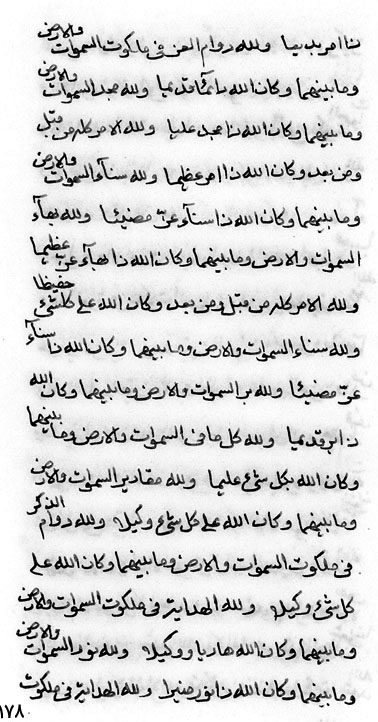 ذا امر بديعا ولله دوام العز في ملكوت السموات والارض
وما بينهما وكان الله دائما قديما ولله مجد السموات والارض
وما بينهما وكان الله ذا مجد عليا ولله الامر كله من قبل
ومن بعد وكان الله ذا امر عظيما ولله سناء السموات والارض
وما بينهما وكان الله ذا سناء عز مضيئا ولله بهاء
السموات والارض وما بينهما وكان الله ذا بهاء عز عظيما
ولله الامر كله من قبل ومن بعد وكان الله على كلشئ حفيظا
ولله سناء السموات والارض وما بينهما وكان الله ذا سناء
عز مضيئا ولله بر السموات والارض وما بينهما وكان الله
ذا بر قديما ولله كل ما في السموات والارض وما بينهما
وكان الله بكل شئ عليما ولله مقادير السموات والارض
وما بينهما وكان الله على كل شئ وكيلا ولله دوام الذكر
في ملكوت السموات والارض وما بينهما وكان الله على
كل شئ وكيلا ولله الهداية في ملكوت السموات والارض
وما بينهما وكان الله هاديا ووكيلا ولله نور السموات والارض
وما بينهما وكان الله ذا نور منيرا ولله الهداية في ملكوت
١٧٨